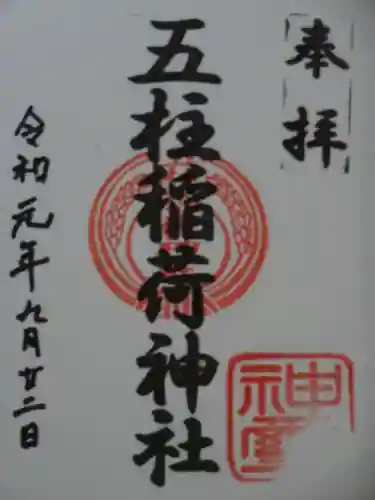 奉拝
五柱稲荷神社
令和元年九月廿二日